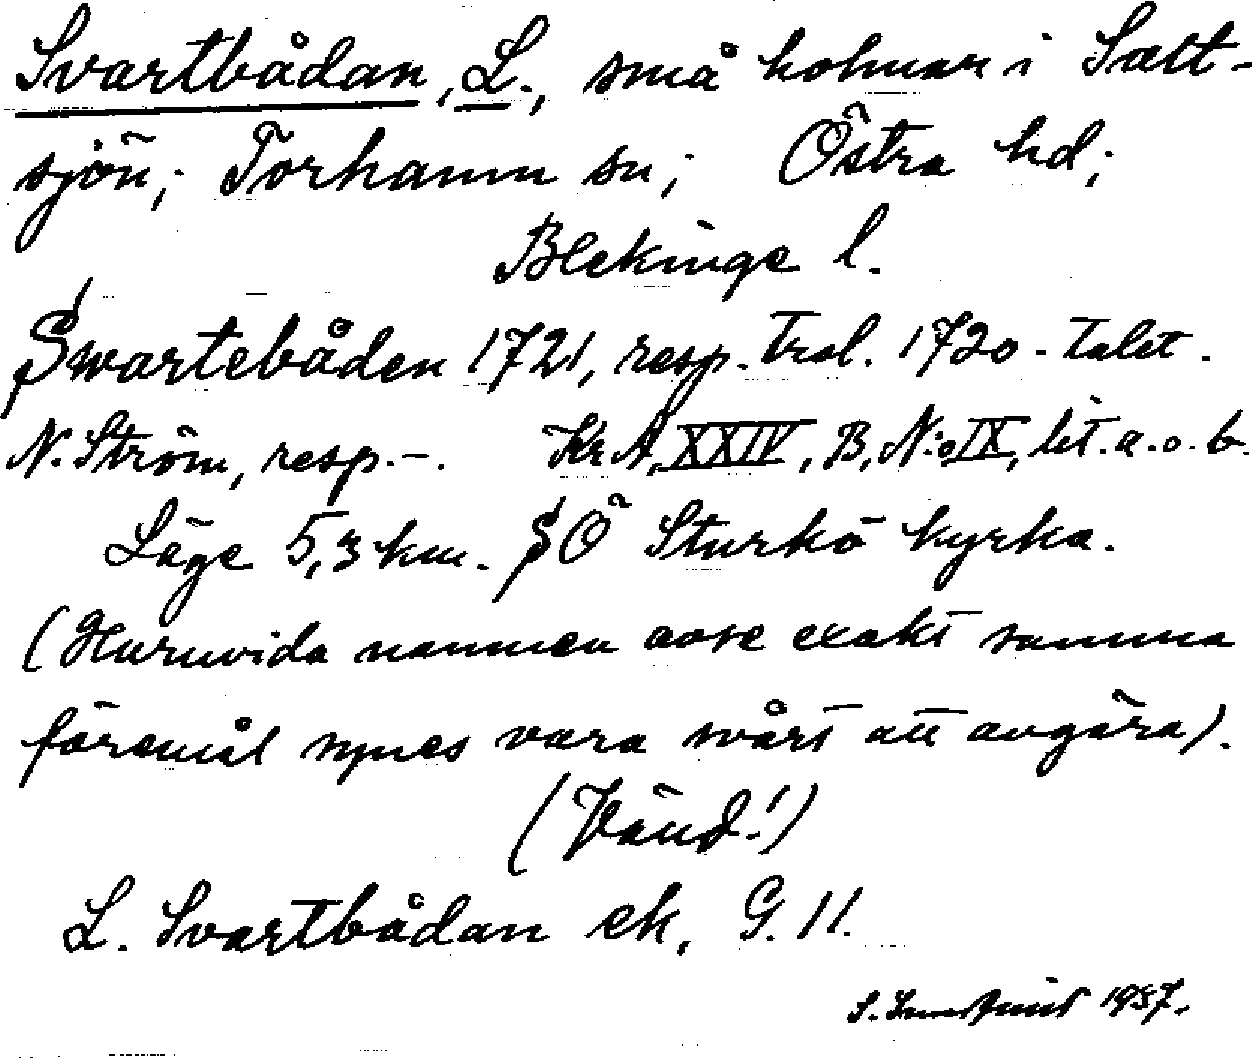 Svartbådan, L., små holmar i Salt-
sjön; Torhamn sn; Östra hd;
Blekinge l.
Swartebåden 1721, resp. trol. 1720-talet.
N. Ström, resp. -. KrA, XXIV, B, N:o IX, lit. a. o. b.
Läge 5,3 km. SÖ Sturkö kyrka.
(Huruvida namnen avse exakt samma
föremål synes vara svårt att avgöra).
(Vänd!)
L. Svartbådan ek. G. 11.
S. 1937.